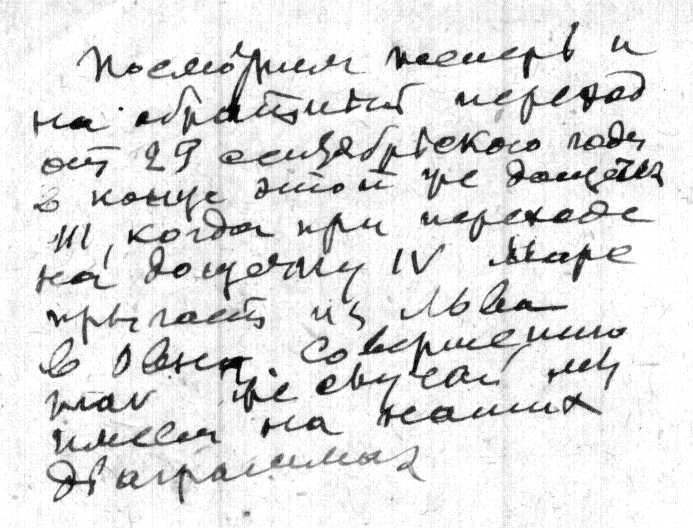 Посмотрим теперь и
на обратный переход
от 29 сентябрьского года
в конце этой же дощечки
III, когда при переходе
на дощечку IV Марс
прыгает из Льва
в Овна. Совершенно
такой же случай мы
имеем на наших
диаграммах